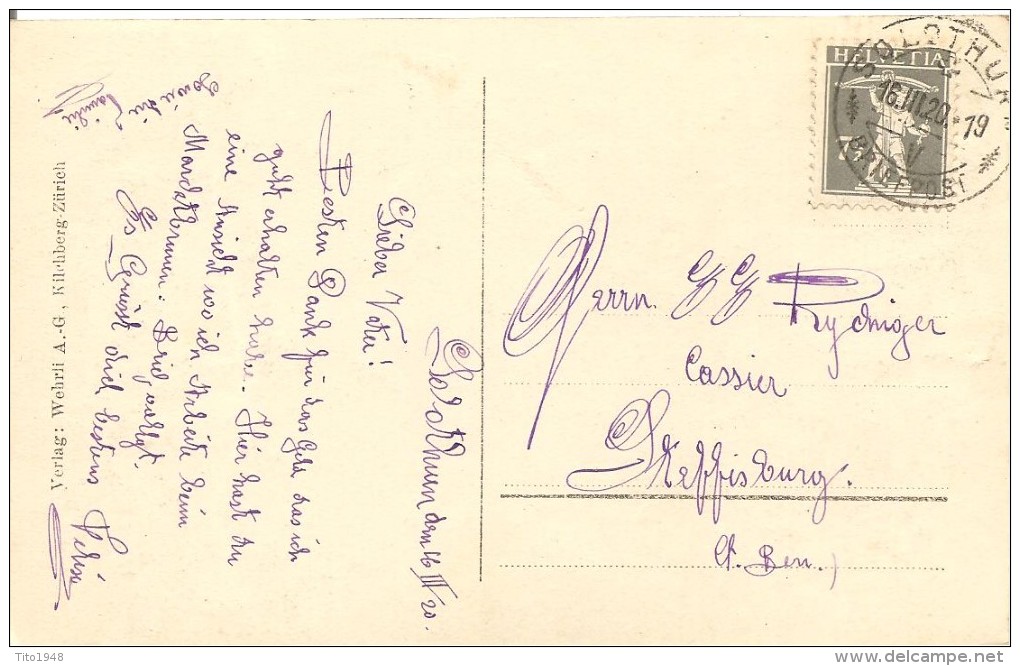 Solothurn den 16 III 20.
Lieber Vater!
Besten Dank für das Geld das ich
gut erhalten habe. Hier hast du
eine Ansicht wo ich Arbeite beim
Marcktbrunen. Brief
Es Grüsst dich bestens
sowie die
Familie
Verlag: Wehrli A.-G., Kilchberg-Zürich
HELVETIA
SOLOTHURN
16.III.20.-19
BRIEFPOST
Herrn. Rydiniger
Cassier
Steffisburg.
Ct. Bern.
Tito1948
delcampe.net